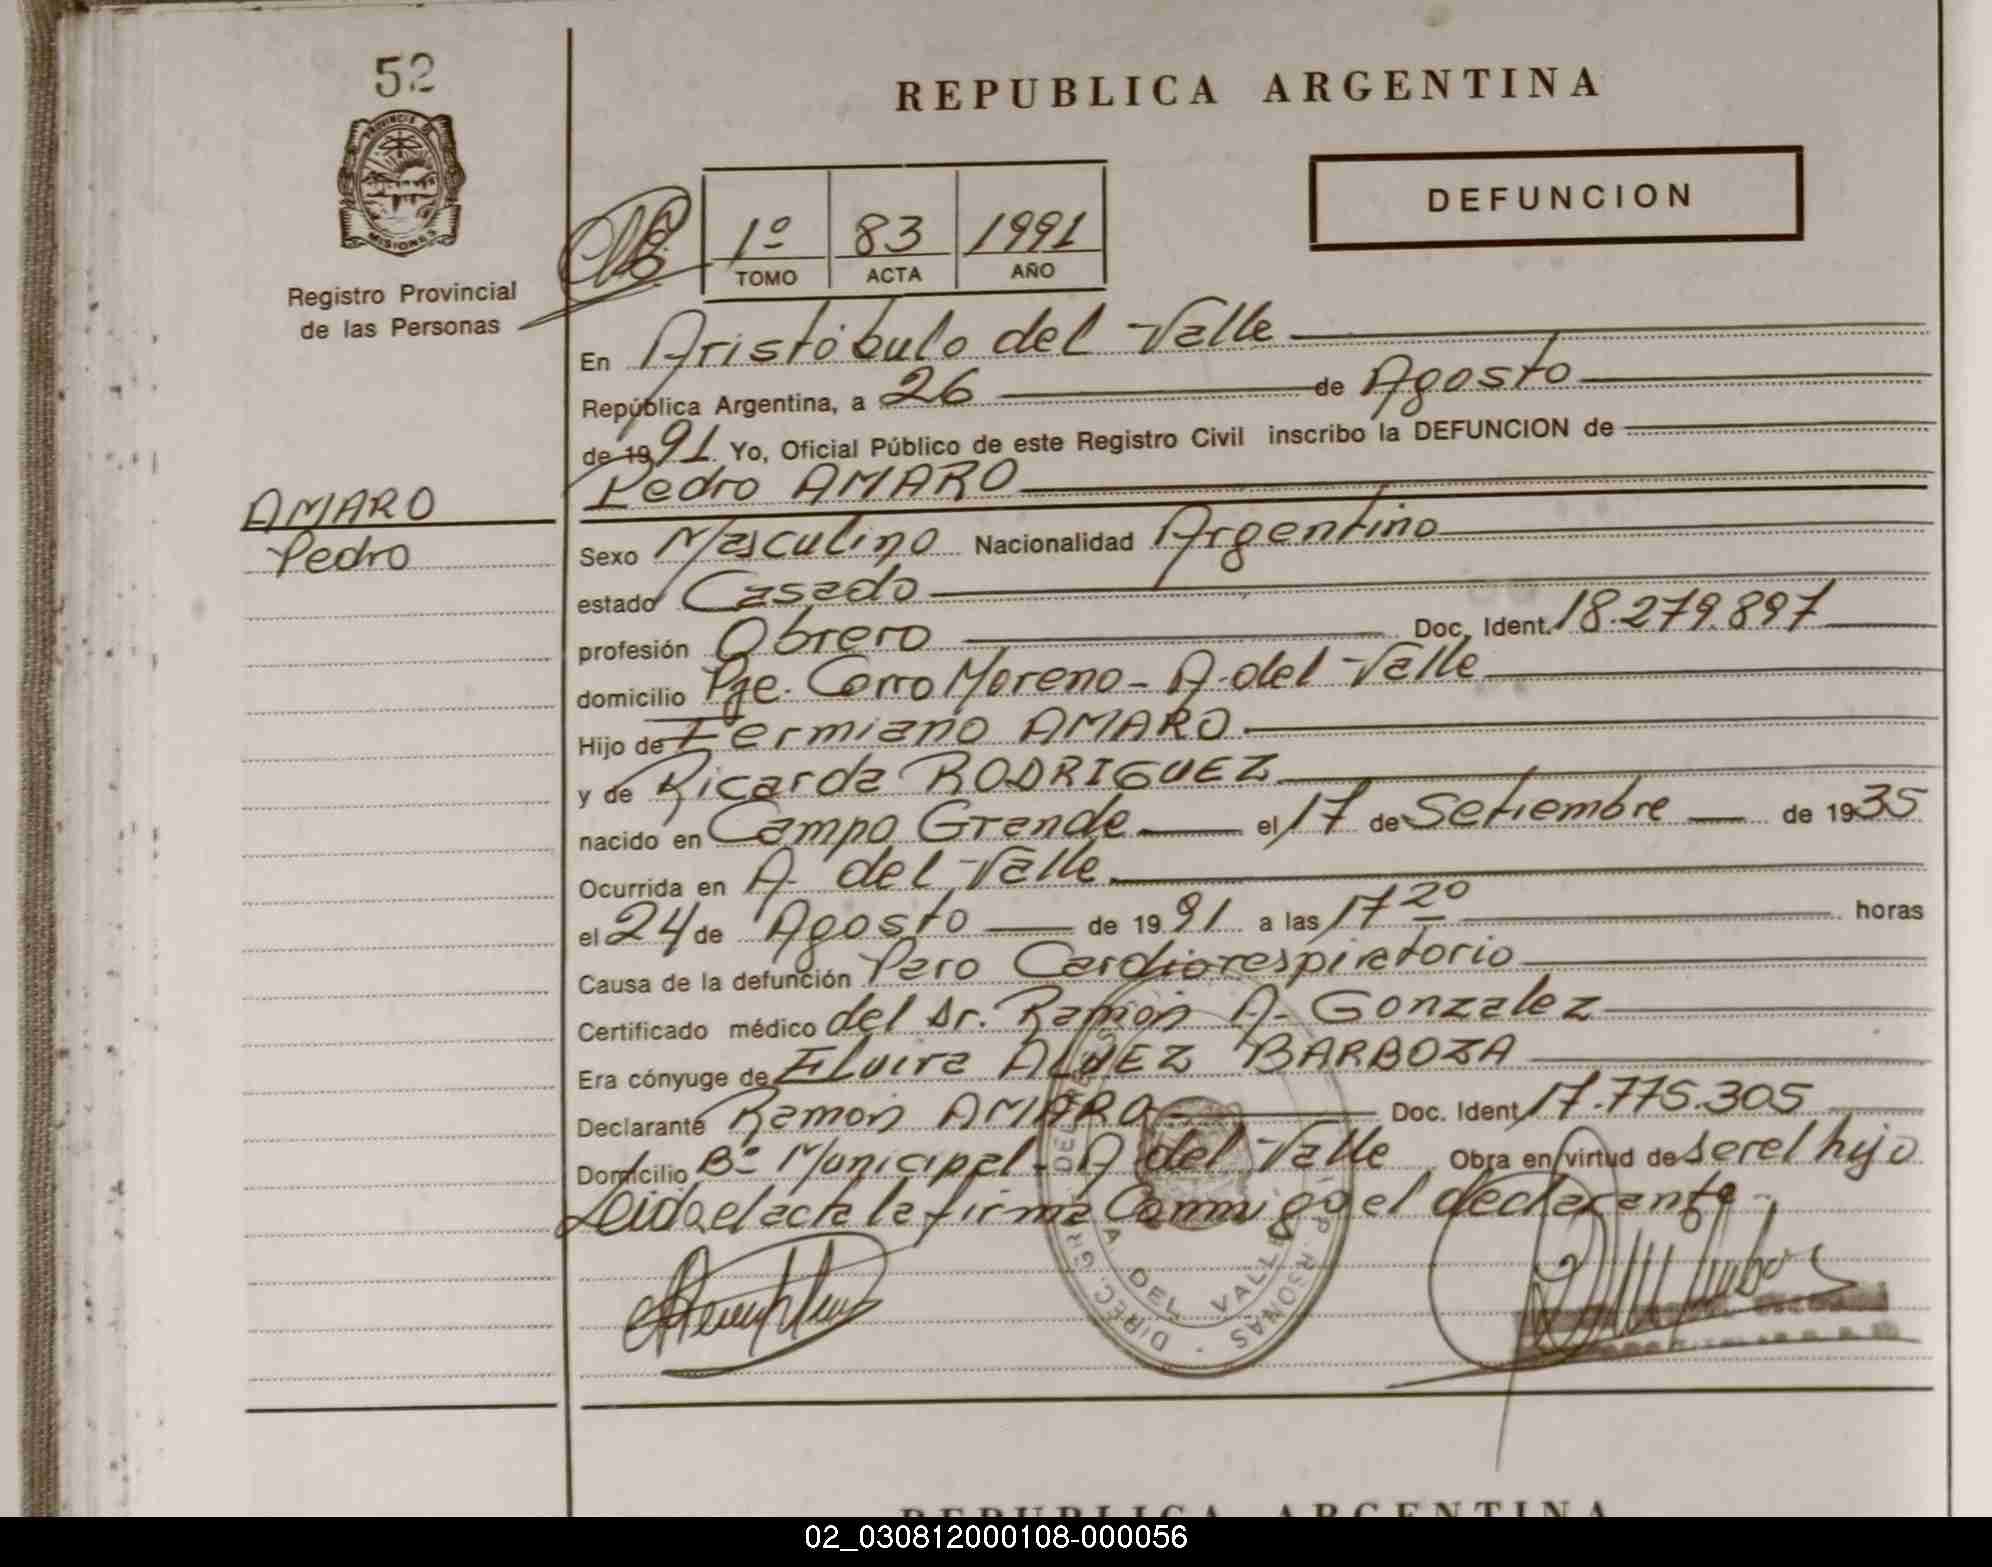 52
PROVINCIA DE
MISIONES
Registro Provincial
de las Personas
REPUBLICA ARGENTINA
DEFUNCION
1º 83 1991
TOMO ACTA AÑO
En Aristóbulo del Valle
República Argentina, a 26 de Agosto
de 1991 Yo, Oficial Público de este Registro Civil inscribo la DEFUNCION de
Pedro AMARO
AMARO
Pedro
Sexo Masculino Nacionalidad Argentino
estado Casado
profesión Obrero Doc. Ident. 18.279.897
domicilio Pje. Corro Moreno - A. del Valle
Hijo de Fermiano AMARO
y de Ricarda RODRIGUEZ
nacido en Campo Grande el 17 de Setiembre de 1935
Ocurrida en A. del Valle
el 24 de Agosto de 1991 a las 17 20 horas
Causa de la defunción Paro Cardiorespiratorio
Certificado médico del Dr. Ramón A. Gonzalez
Era cónyuge de Elvira ALVEZ BARBOZA
Declarante Ramón AMARO Doc. Ident. 17.775.305
Domicilio Bº Municipal - A. del Valle Obra en virtud de ser el hijo
Leida el acta la firma Conmigo el declarante.
A. DEL VALLE
REPUBLICA ARGENTINA
02_030812000108-000056